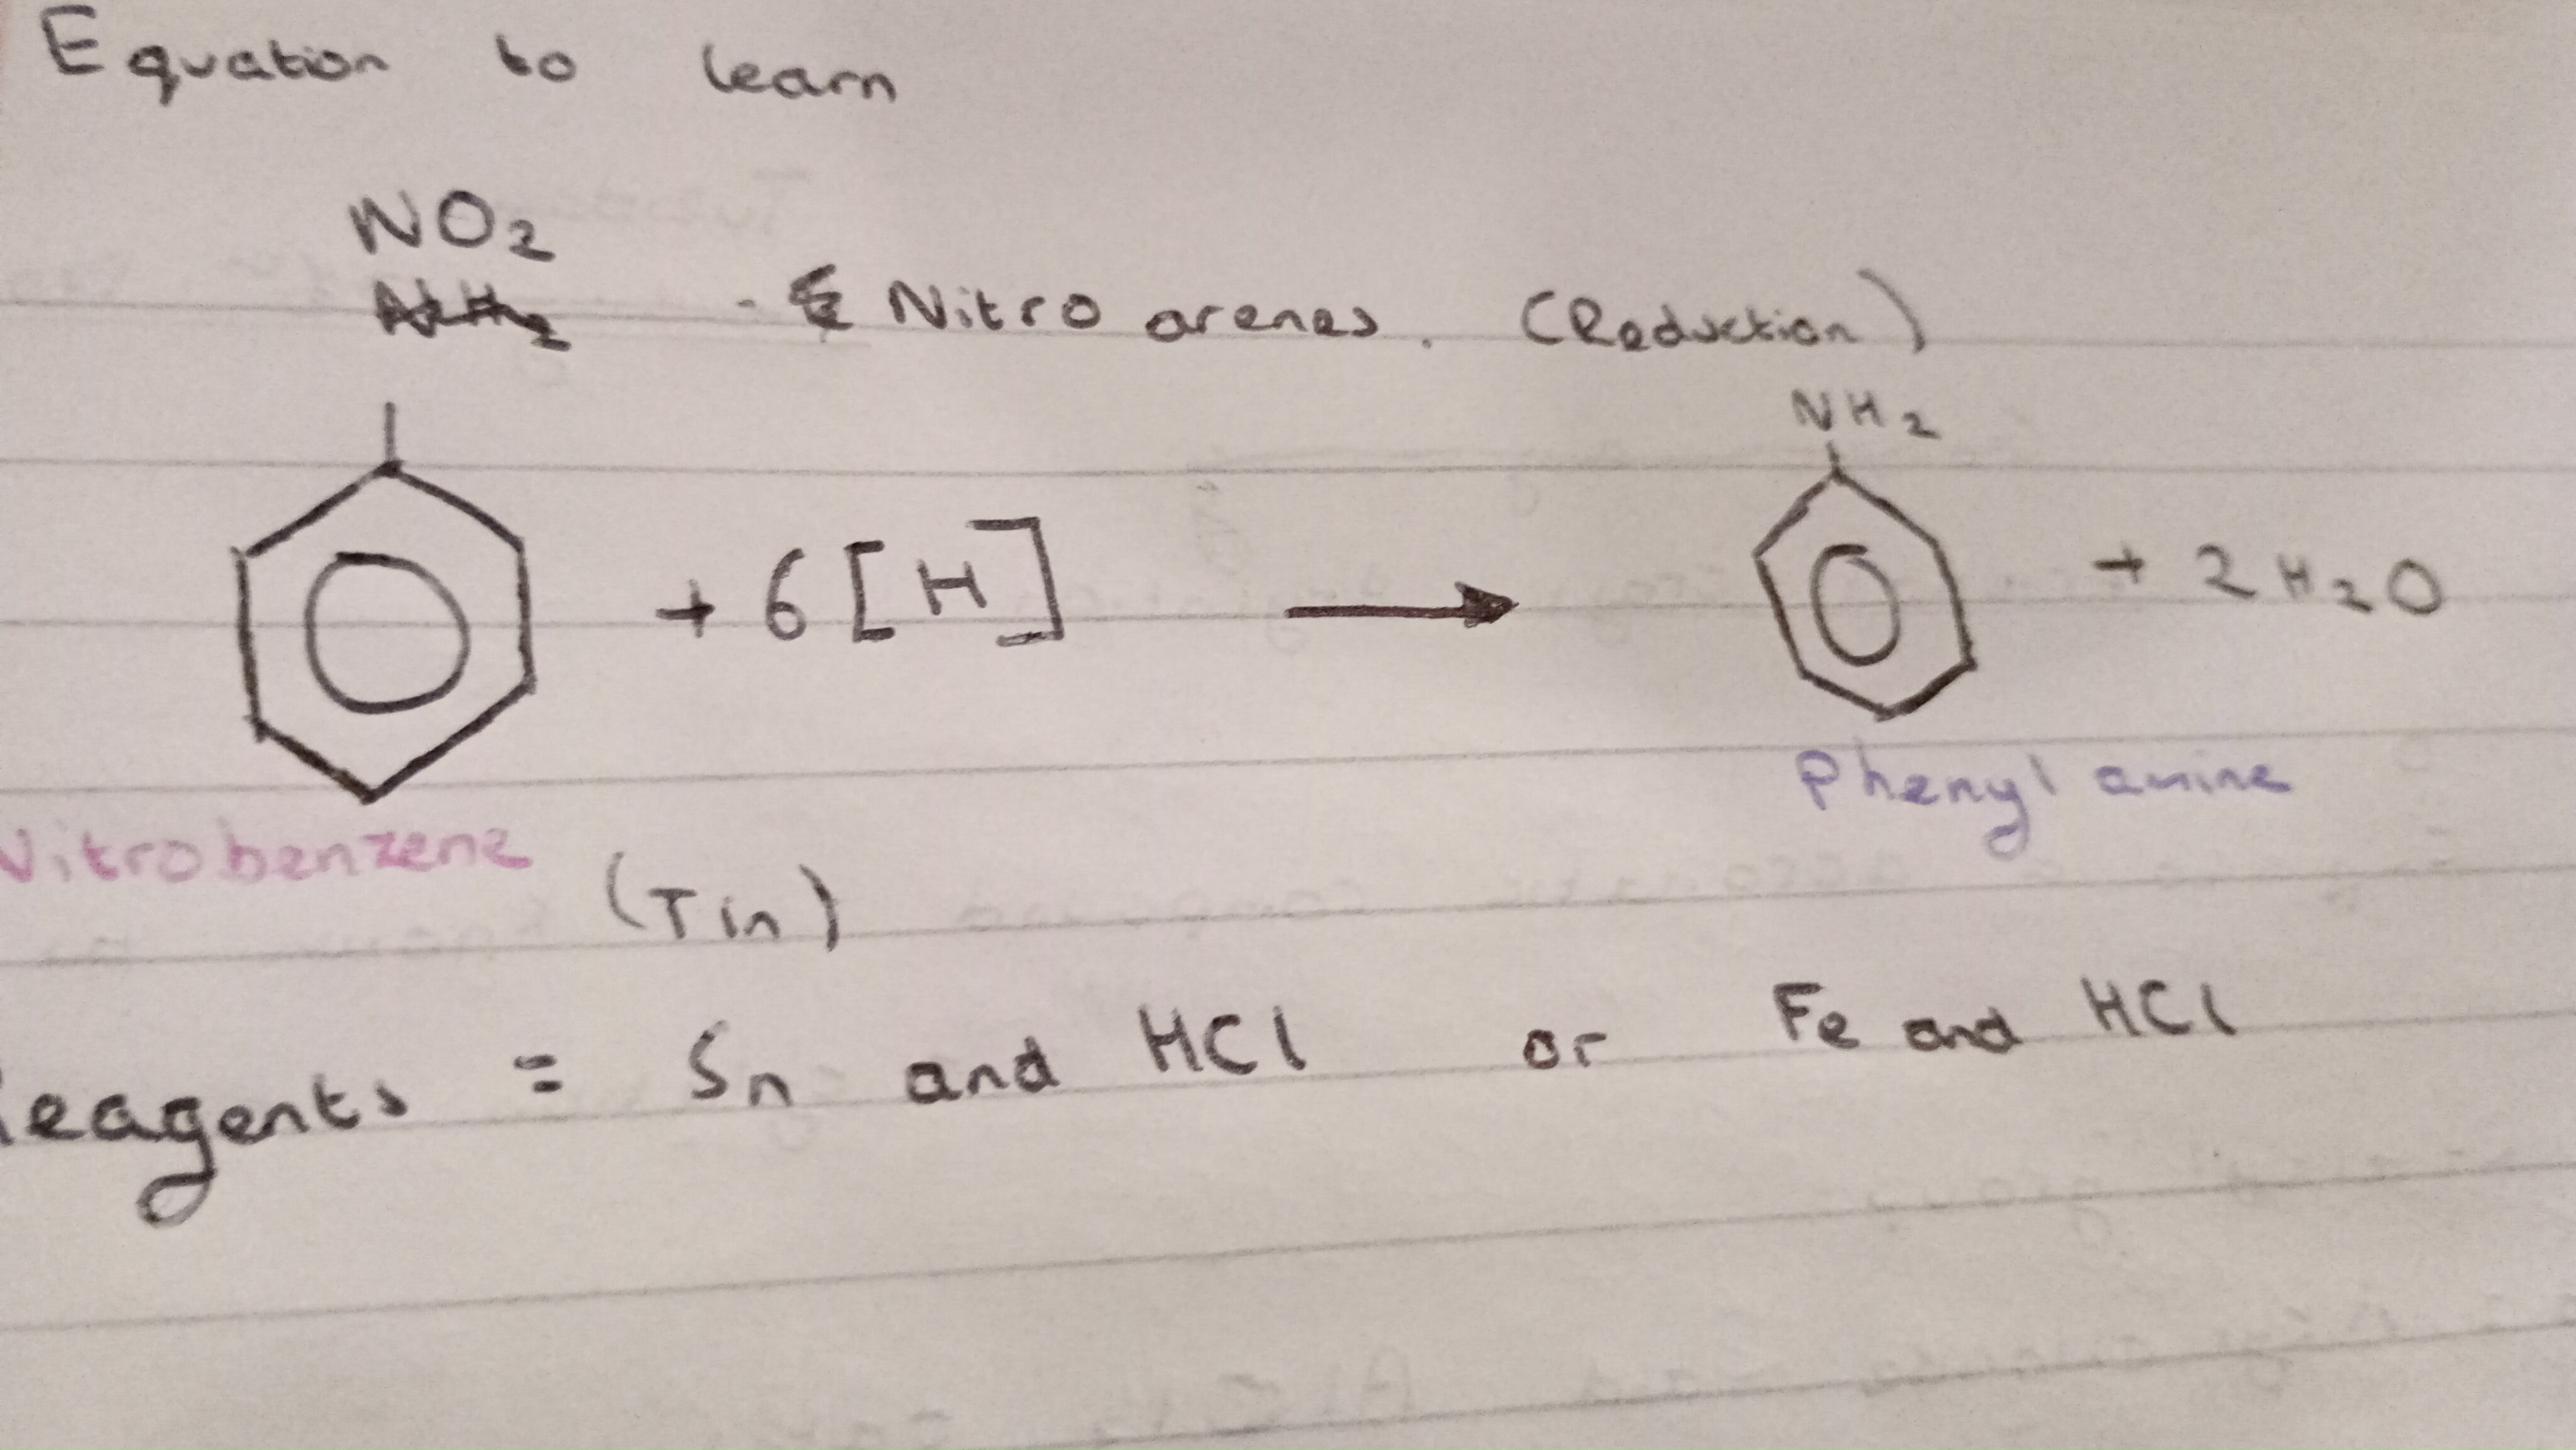 Equation to learn
NO2
- Nitro arenes. (Reduction)
NH2
+ 6 [H] → + 2H2O
Phenyl amine
Nitrobenzene
(Tin)
Reagents = Sn and HCl or Fe and HCl